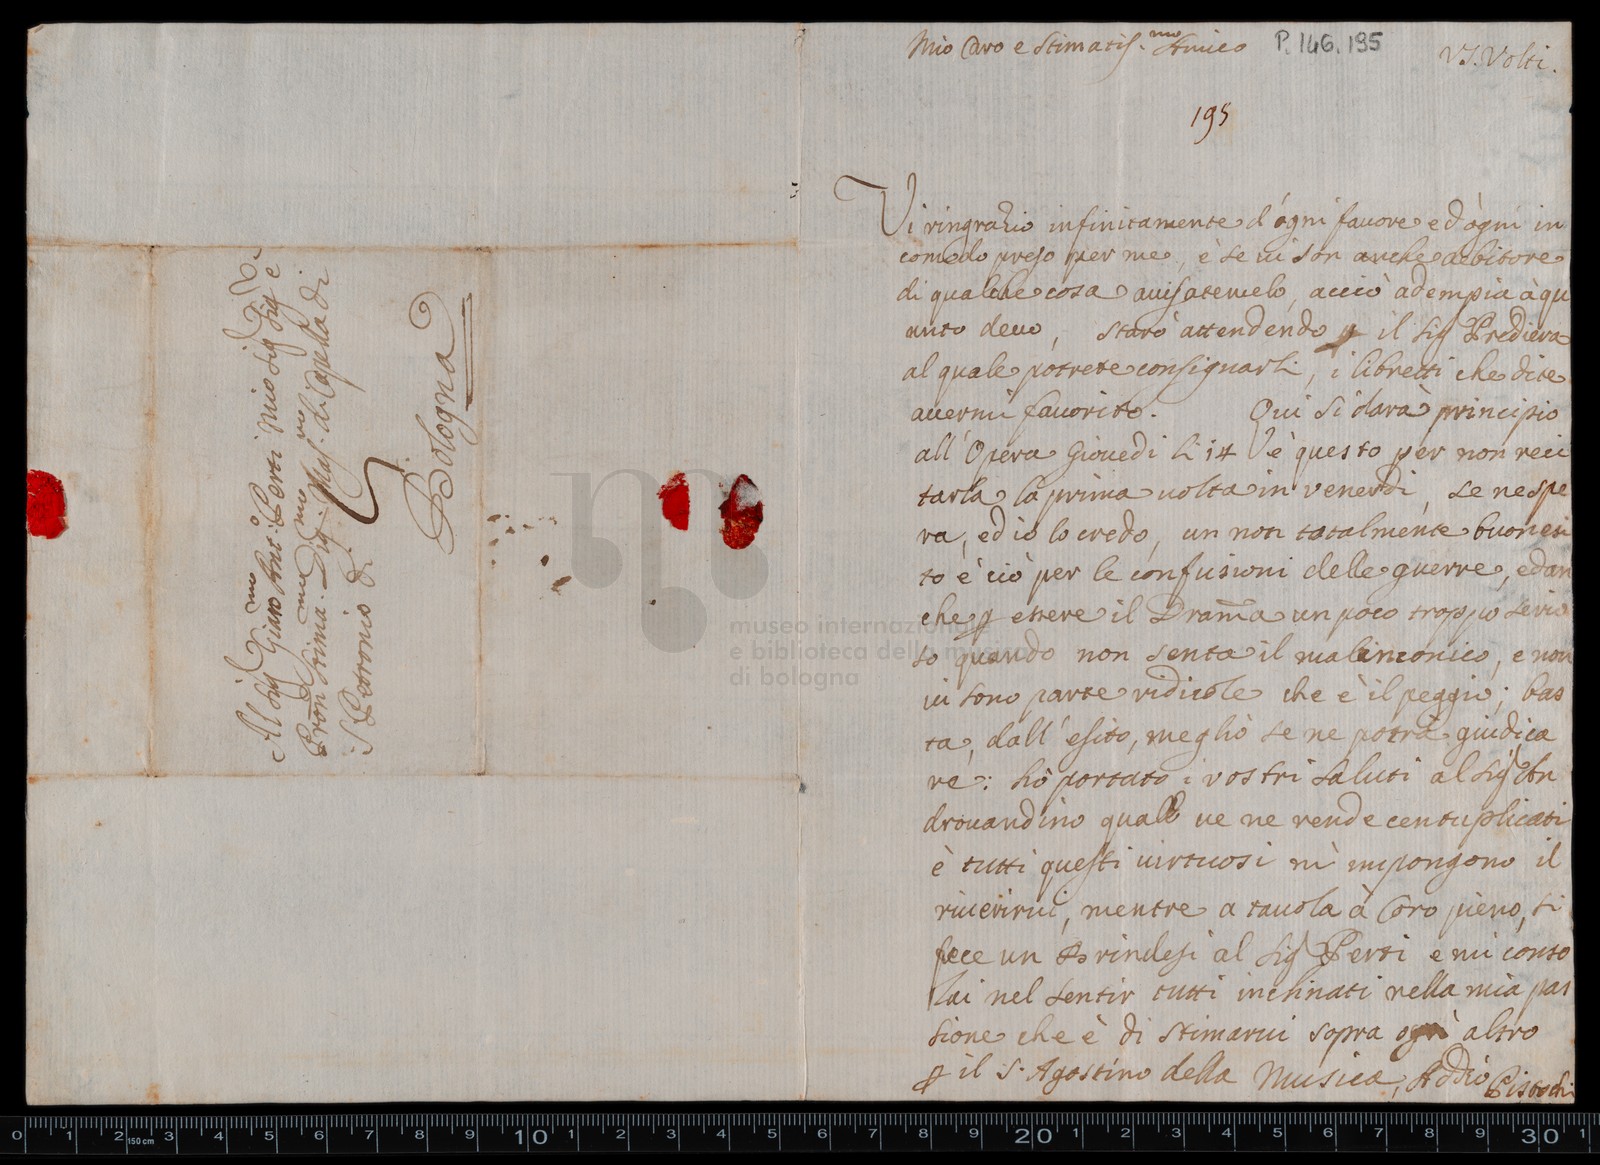 Mio Caro e Stimatis.mo Amico P.146.195 VS. Volti.
195
Vi ringrazio infinitamente d'ogni favore e d'ogni in
comodo preso per me, è se vi son anche debitore
di qualche cosa avisatemelo, acciò adempia à qu
anto devo, starò attendendo il Sig Prediera
al quale potrete consignarli, i libretti che dite
avermi favorito. Qui si darà principio
all'Opera Giovedi li 14 è questo per non reci
tarla la prima volta in venerdi, se ne spe
ra, ed io lo credo, un non totalmente buon esi
to è ciò per le confusioni delle guerre, ed an
che p essere il Drama un poco troppo serio
so quando non senta il malinconico, e non
vi sono parte ridicole che è il peggio; bas
ta, dall'esito, meglio se ne potrà giudica
re: hò portato i vostri saluti al Sig An
drovandino quall ve ne rende centuplicati
è tutti questi virtuosi mi impongono il
riverirvi, mentre a tavola à Coro pieno, si
fece un Brindesi al Sig Perti e mi conso
lai nel sentir tutti inclinati nella mia pas
sione che è di stimarvi sopra ogni altro
p il S. Agostino della Musica, Addio Pistochi
Al Sig Giaco Ant.o Perti mio Sig
Pron Stima. Mas. di Capella di
S Petronio
Bologna
museo internazionale
e biblioteca della musica
di bologna
0 1 2 150 cm 3 4 5 6 7 8 9 10 1 2 3 4 5 6 7 8 9 20 1 2 3 4 5 6 7 8 9 30 1